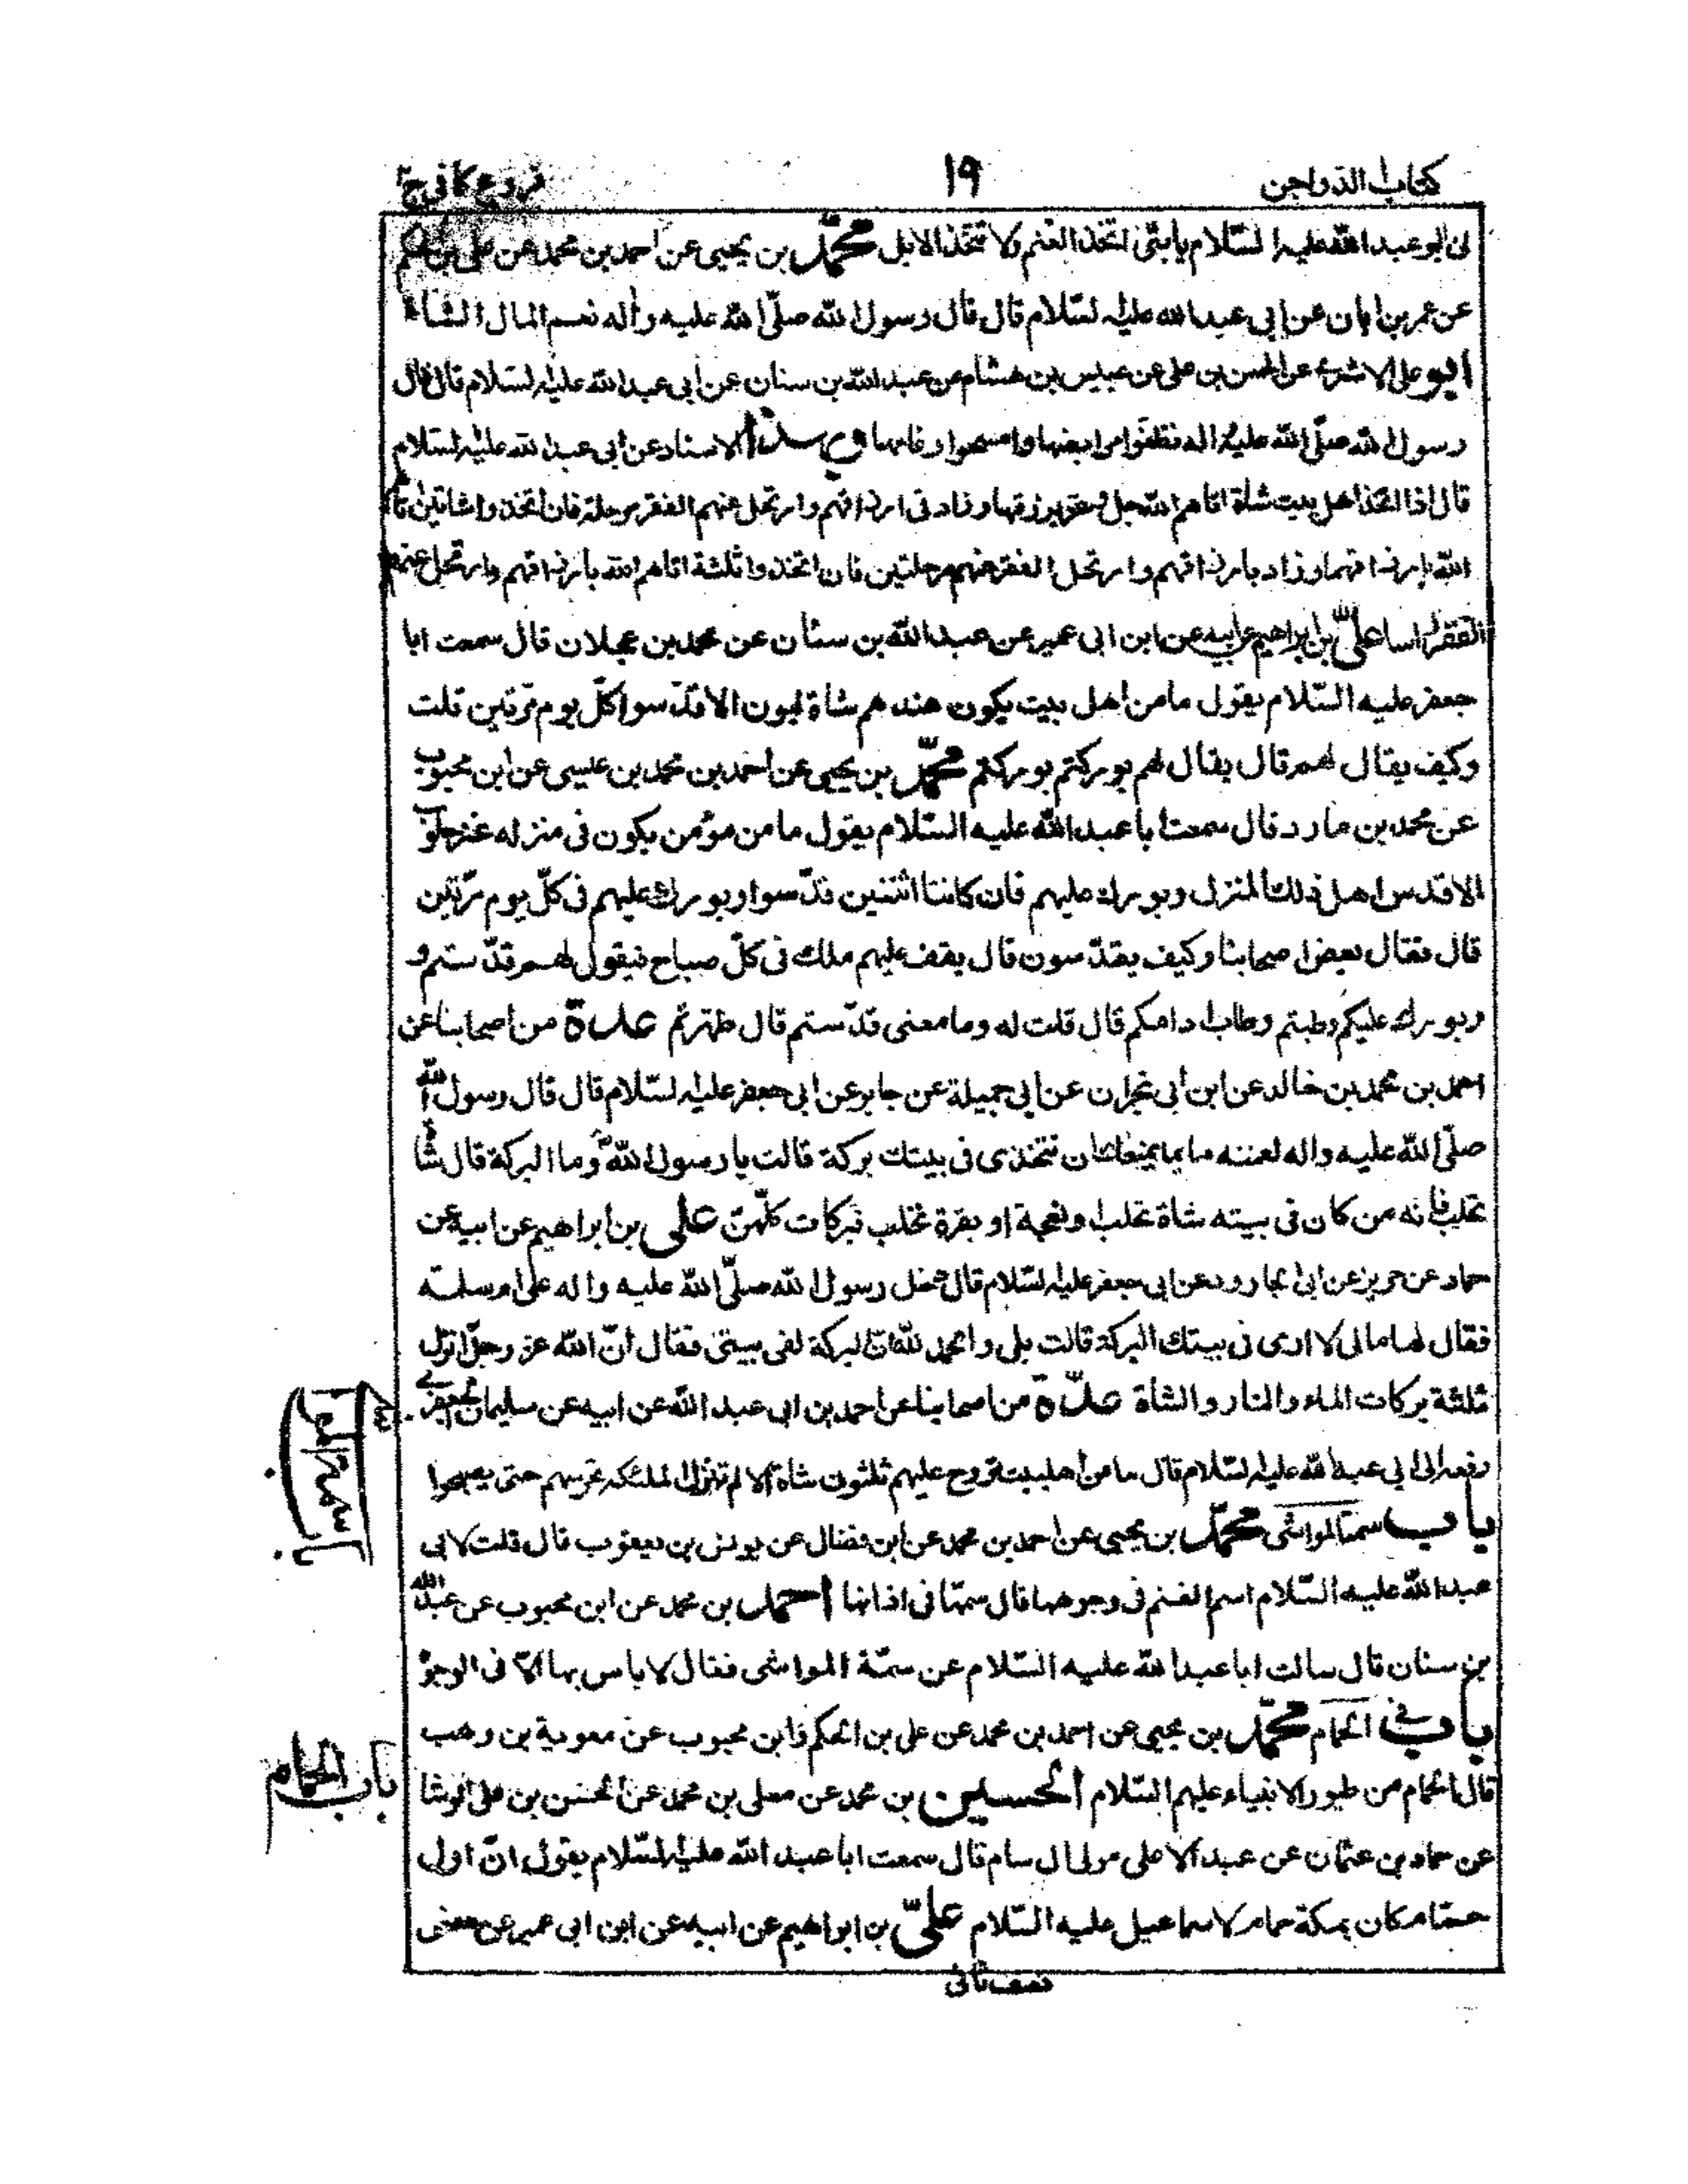 كتاب الدواجن
١٩
فروع كافى ج
لى ابو عبد الله عليه السّلام يا بنىّ اتخذ الغنم ولا تتخذ الابل محمّد بن يحيى عن احمد بن محمد عن على بن الحكم
عن عمر بن ابان عن ابى عبد الله عليه السّلام قال قال رسول الله صلّى الله عليه واله نعم المال الشاة
ابو على الاشعرى عن الحسن بن على عن عبيس بن هشام عن عبد الله بن سنان عن ابى عبد الله عليه السّلام قال قال
رسول الله صلّى الله عليه واله نظفوا مرابضها وامسحوا رغامها وبهذا الاسناد عن ابى عبد الله عليه السلام
قال اذا اتخذ اهل بيت شاة اتاهم الله جل وعز برزقها وزاد فى ارزاقهم وارتحل عنهم الفقر مرحلة فان اتخذوا شاتين اتاهم
الله بارزاقهما وزاد بارزاقهم وارتحل الفقر عنهم مرحلتين فان اتخذوا ثلثة اتاهم الله بارزاقهم وارتحل عنهم
الفقر راسا علىّ بن ابراهيم عن ابيه عن ابن ابى عمير عن عبد الله بن سنان عن محمد بن عجلان قال سمعت ابا
جعفر عليه السّلام يقول ما من اهل بيت يكون عندهم شاة لبون الا قدّسوا كلّ يوم مرّتين قلت
وكيف يقال لهم قال يقال لهم بوركتم بوركتم محمّد بن يحيى عن احمد بن محمد بن عيسى عن ابن محبوب
عن محمد بن مارد قال سمعت ابا عبد الله عليه السّلام يقول ما من مؤمن يكون فى منزله عنز حلوب
الا قدس اهل ذلك المنزل وبورك عليهم فان كانتا اثنتين قدّسوا وبورك عليهم فى كلّ يوم مرّتين
قال فقال بعض اصحابنا وكيف يقدّسون قال يقف عليهم ملك فى كلّ صباح فيقول لهم قدّستم و
وبورك عليكم وطبتم وطاب ادامكم قال قلت له وما معنى قدّستم قال طهرتم عدة من اصحابنا عن
احمد بن محمد بن خالد عن ابن ابى نجران عن ابى جميلة عن جابر عن ابى جعفر عليه السّلام قال قال رسول الله
صلّى الله عليه واله لعمته ما يمنعك ان تتخذى فى بيتك بركة قالت يا رسول الله وما البركة قال شاة
تحلب فانه من كان فى بيته شاة تحلب او نعجة او بقرة تحلب فبركات كلّهنّ على بن ابراهيم عن ابيه عن
حماد عن حريز عن ابى الجارود عن ابى جعفر عليه السّلام قال دخل رسول الله صلّى الله عليه واله على ام سلمة
فقال لها مالى لا ارى فى بيتك البركة قالت بلى والحمد لله انّ البركة لفى بيتى فقال انّ الله عز وجلّ انزل
ثلثة بركات الماء والنار والشاة عدّة من اصحابنا عن احمد بن ابى عبد الله عن ابيه عن سليمان الجعفرى
رفعه الى ابى عبد الله عليه السّلام قال ما من اهل بيت تروح عليهم ثلثون شاة الا لم تنزل الملئكة تحرسهم حتى يصبحوا
باب سمة المواشى محمّد بن يحيى عن احمد بن محمد عن ابن فضال عن يونس بن يعقوب قال قلت لابى
عبد الله عليه السّلام اسم الغنم فى وجوهها قال سمها فى اذانها احمد بن محمد عن ابن محبوب عن عبد الله
بن سنان قال سالت ابا عبد الله عليه السّلام عن سمّة المواشى فقال لا باس بها الّا فى الوجوه
باب فى الحمام محمّد بن يحيى عن احمد بن محمد عن على بن الحكم وابن محبوب عن معوية بن وهب
قال الحمام من طيور الانبياء عليهم السّلام الحسين بن محمد عن معلى بن محمد عن الحسن بن على الوشا
عن حماد بن عثمان عن عبد الاعلى مولى ال سام قال سمعت ابا عبد الله عليه السّلام يقول انّ اول
حمام كان بمكة حمام لاسماعيل عليه السّلام علىّ بن ابراهيم عن ابيه عن ابن ابى عمير عن حفص
باب سمة المواشى
باب الحمام
نصف ثانى